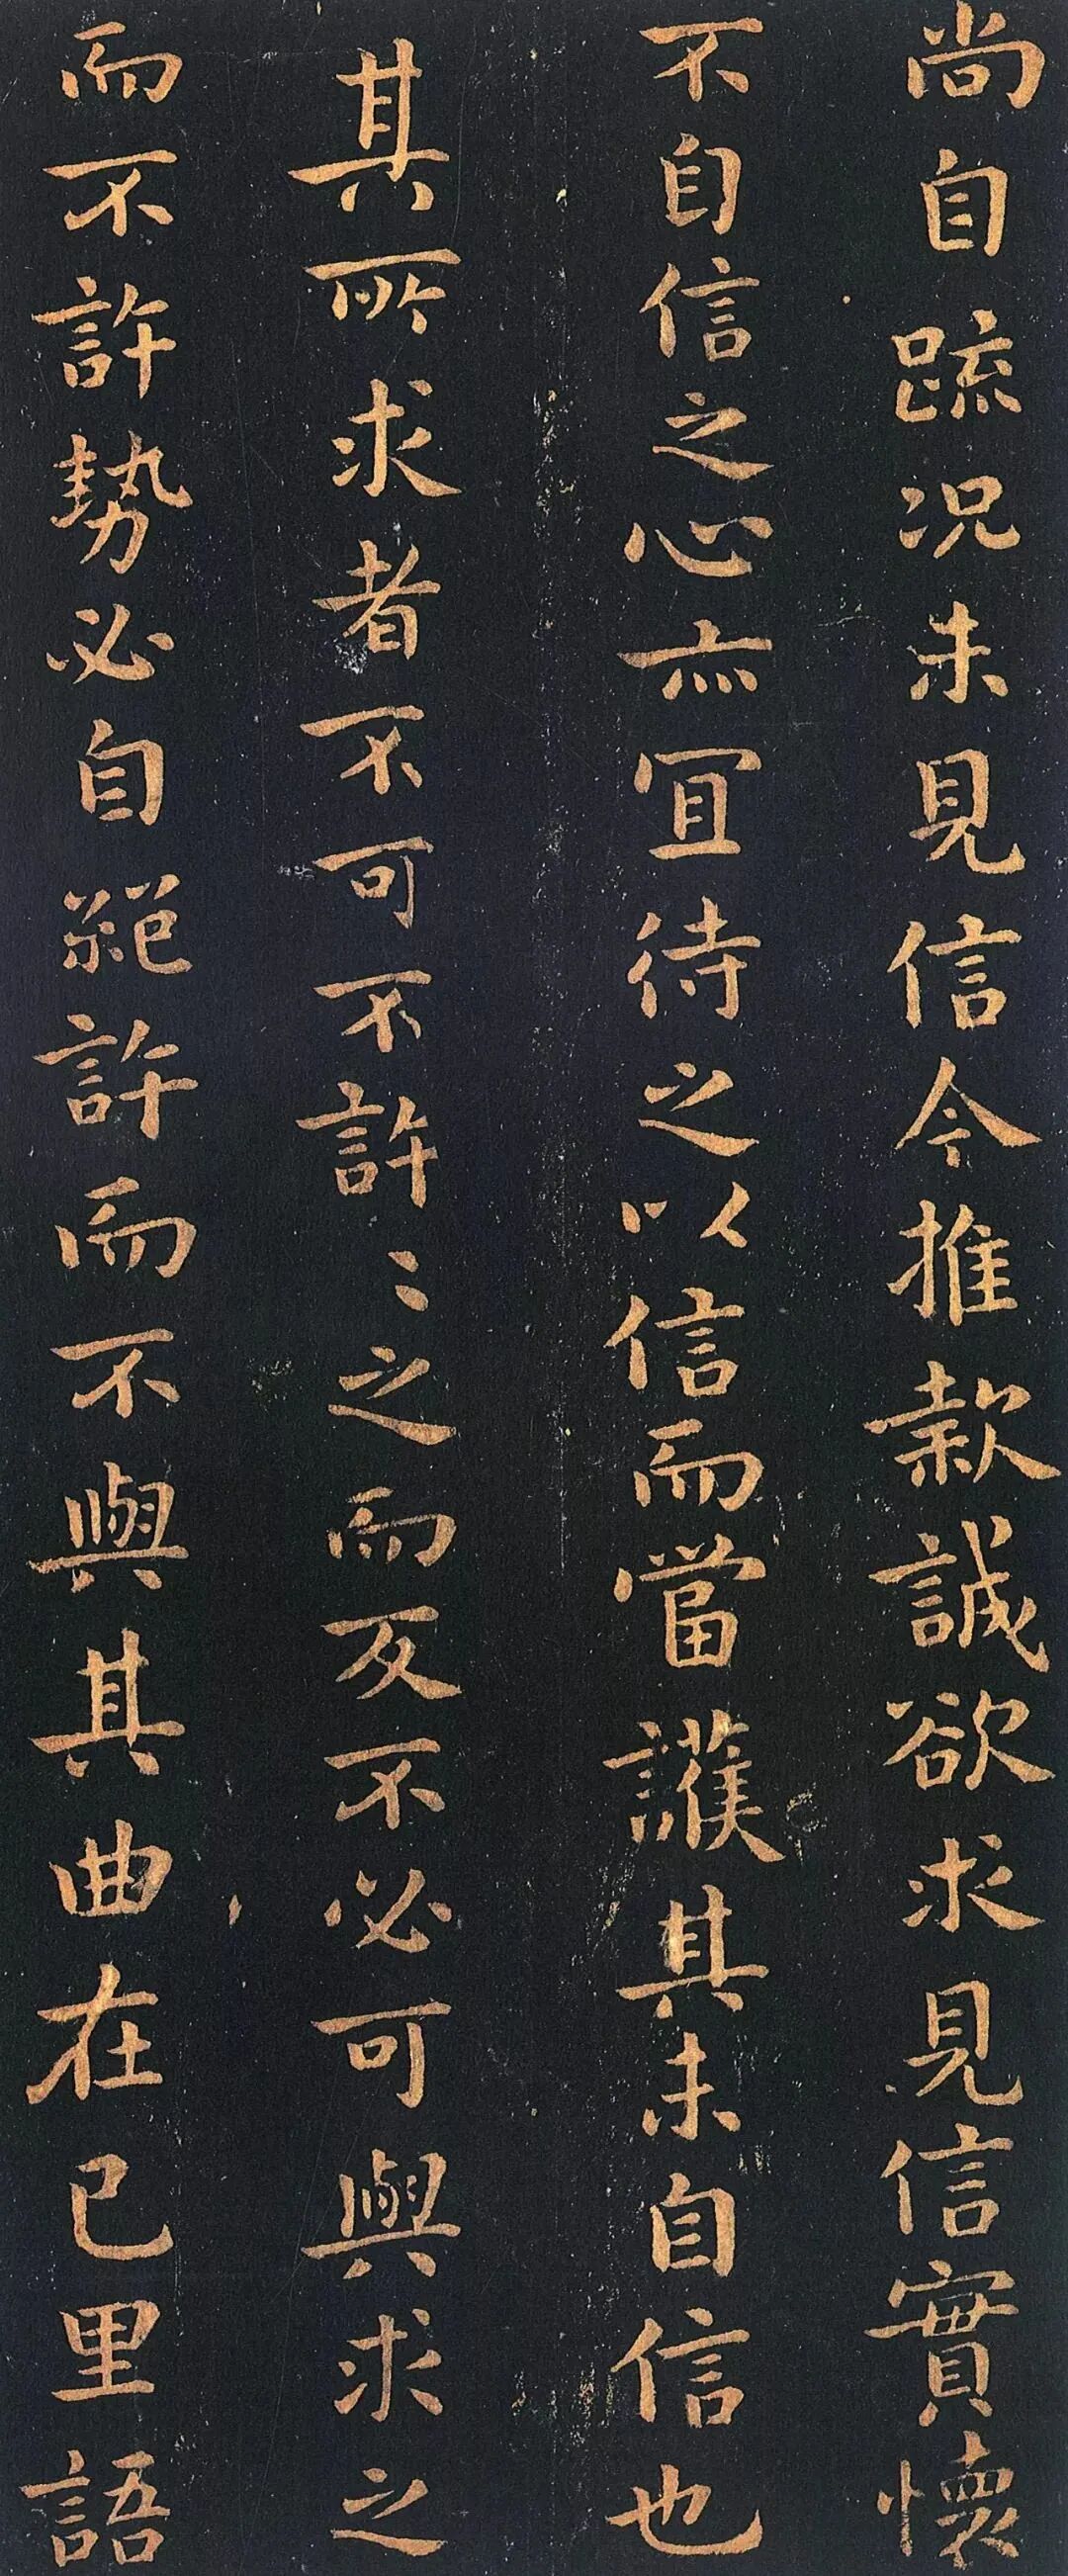 尚自疏况未見信今推款誠欲求見信實懷
不自信之心亦宜待之以信而當護其未自信也
其所求者不可不許許之而反不必可與求之
而不許勢必自絕許而不與其曲在己里語